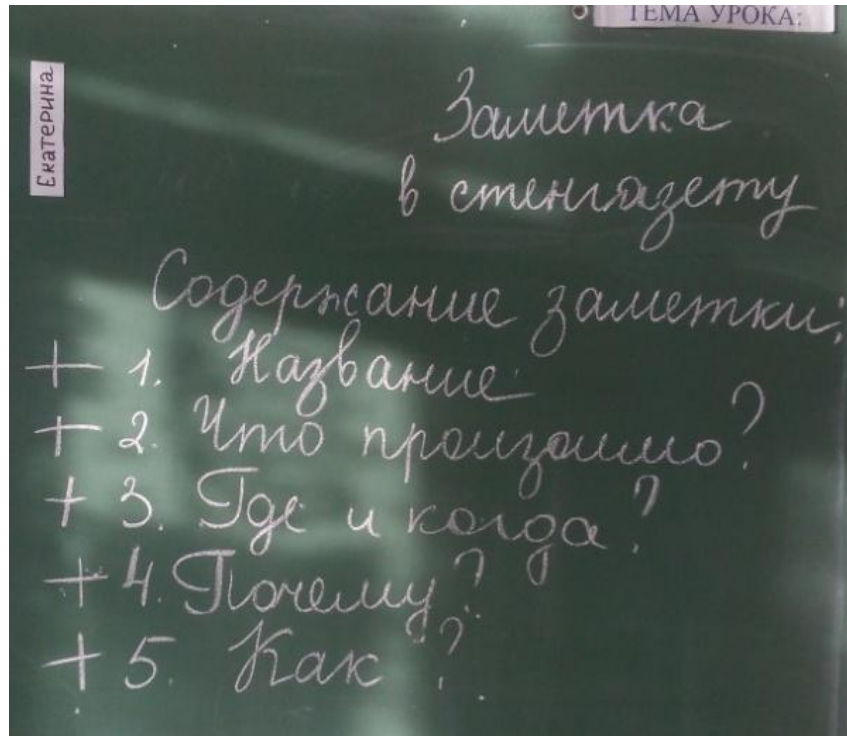 ТЕМА УРОКА:
Екатерина
Заметка
в стенгазету
Содержание заметки:
+ 1. Название
+ 2. Что произошло?
+ 3. Где и когда?
+ 4. Почему?
+ 5. Как?